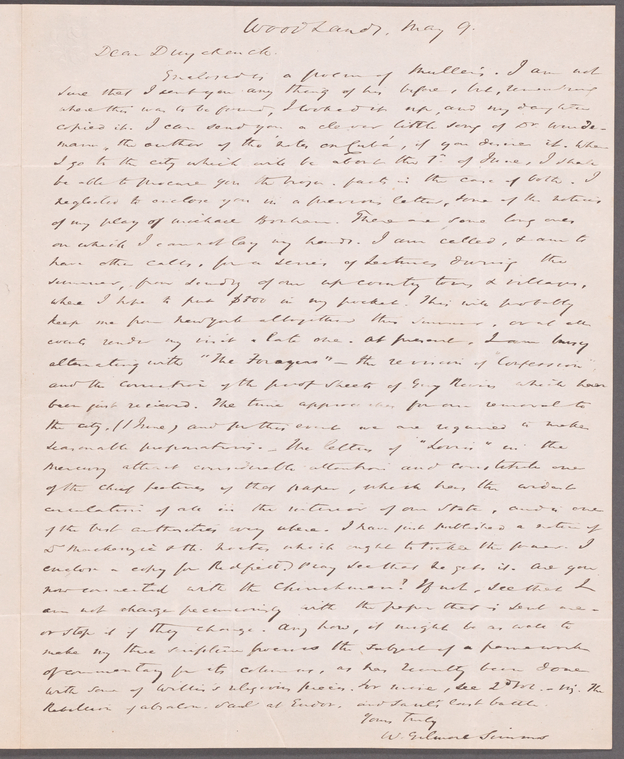 Woodlands, May 9.
Dear Duyckinck.
Enclosed is a poem of Muller's. I am not
sure that I sent you any thing of his before, but, remembering
where this was to be found, I looked it up, and my daughter
copied it. I can send you a clever little song of Dr Wurde-
mann, the author of the 'Notes on Cuba', if you desire it. When
I go to the city which will be about the 1st. of June, I shall
be able to procure you the biogr. facts in the case of both. I
neglected to enclose you in a previous letter, some of the notices
of my play of Michael Bonham. There are some long ones
on which I cannot lay my hands. I am called, & am to
have other calls, for a series of Lectures during the
summer, from sundry of our up country towns & villages,
where I hope to put $500 in my pocket. This will probably
keep me from New York altogether this summer, or at all
events render my visit a late one. At present, I am busy
alternating with "The Foragers" — the revision of "Confession"
and the correction of the proof sheets of Guy Rivers which have
been just recieved. The time approaches for our removal to
the city, (1 June) and for this event we are required to make
seasonable preparations. — The letters of "Lorris" in the
Mercury attract considerable attention and constitute one
of the chief features of that paper, which has the widest
circulation of all in the interior of our State, and is one
of the best authorities every where. I have just published a notice of
Dr Mackenzie & the Noctes which ought to tickle the former. I
enclose a copy for Redfield. Pray see that he gets it. Are you
now connected with the Churchman? If not, see that I
am not charged pecuniarily with the paper that is sent me —
or stop it if they charge. Any how, it might be as well to
make my three scripture poems the subject of a paper or two
of commentary for its columns, as has recently been done
with some of Willis's religious pieces. For mine, see 2d Vol. — viz. The
Rebellion of Absalom. Saul at Endor, and Saul's last battle.
Yours truly
W. Gilmore Simms